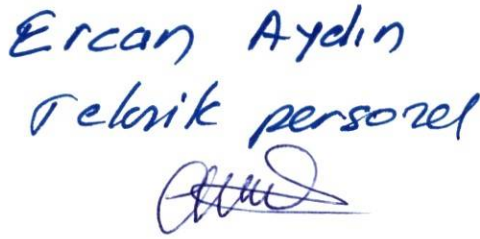 Ercan Aydın
Teknik personel